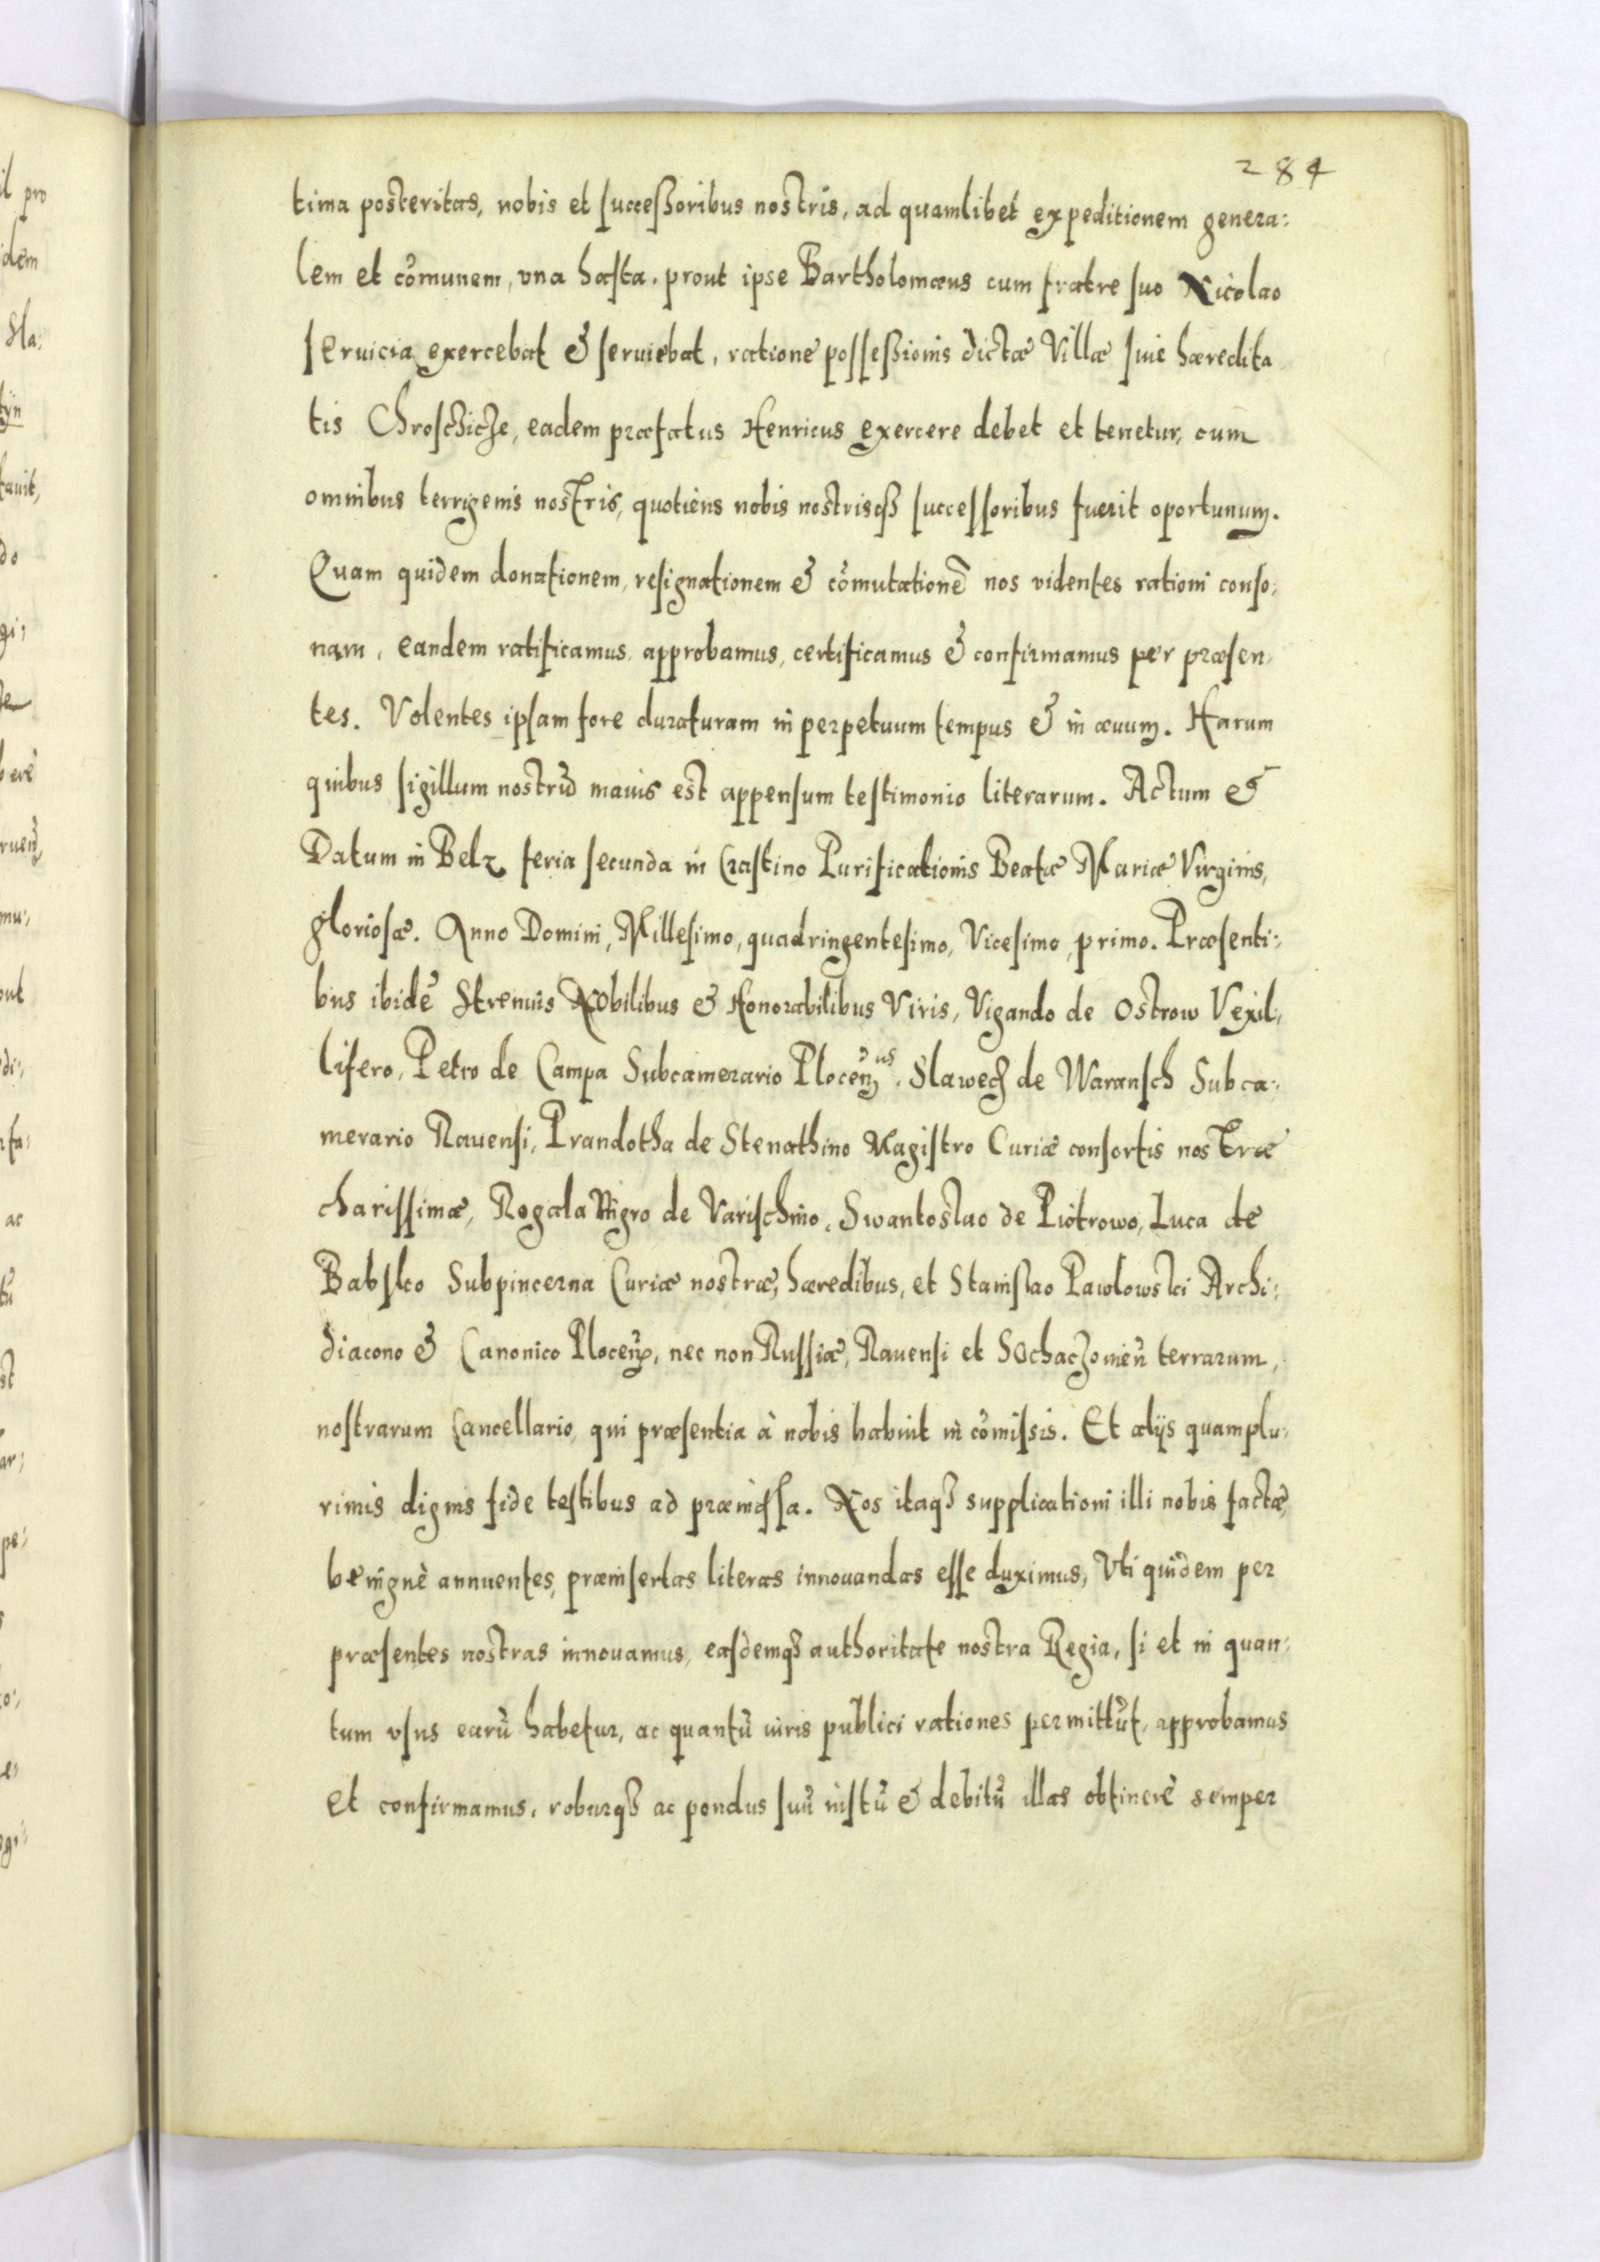 284
tima posteritas, nobis et successoribus nostris, ad quamlibet expeditionem genera:
lem et cõmunem, vna hasta, prout ipse Bartholomæus cum fratre suo Nicolao
seruicia exercebat & seruiebat, ratione possessionis dictæ Villæ siue hæredita
tis Chroschicze, eadem præfatus Henricus exercere debet et tenetur, cum
omnibus terrigenis nostris, quotiens nobis nostrisqȝ successoribus fuerit oportunum.
Quam quidem donationem, resignationem & cõmutationẽ nos videntes rationi conso:
nam, eandem ratificamus, approbamus, certificamus & confirmamus per præsen:
tes. Volentes ipsam fore duraturam in perpetuum tempus & in æuum. Harum
quibus sigillum nostrũ maius est appensum testimonio literarum. Actum &
Datum in Belz feria secunda in Crastino Purificationis Beatæ Mariæ Virginis,
gloriosæ. Anno Domini, Millesimo, quadringentesimo, Vicesimo, primo. Præsenti:
bus ibidẽ Strenuis Nobilibus & Honorabilibus Viris, Vigando de Ostrow Vexil:
lifero, Petro de Campa Subcamerario Plocen̄, Slawecz de Waransch Subca:
merario Rauensi, Prandotha de Stenathino Magistro Curiæ consortis nostræ
charissimæ, Rogala Nigro de Varischino, Swantoslao de Piotrowo, Luca de
Babsko Subpincerna Curiæ nostræ, hæredibus, et Stanislao Pawlowski Archi:
diacono & Canonico Plocen̄, nec non Russiæ, Rauensi et Sochaczouien̄ terrarum,
nostrarum Cancellario, qui præsentia à nobis habuit in cõmissis. Et alijs quamplu:
rimis dignis fide testibus ad præmissa. Nos itaqȝ supplicationi illi nobis factæ,
benignè annuentes, præinsertas literas innouandas esse duximus, Vti quidem per
præsentes nostras innouamus, easdemqȝ authoritate nostra Regia, si et in quan:
tum vsus earũ habetur, ac quantũ iuris publici rationes permittũt, approbamus
et confirmamus, roburqȝ ac pondus suũ iustũ & debitũ illas obtinere semper